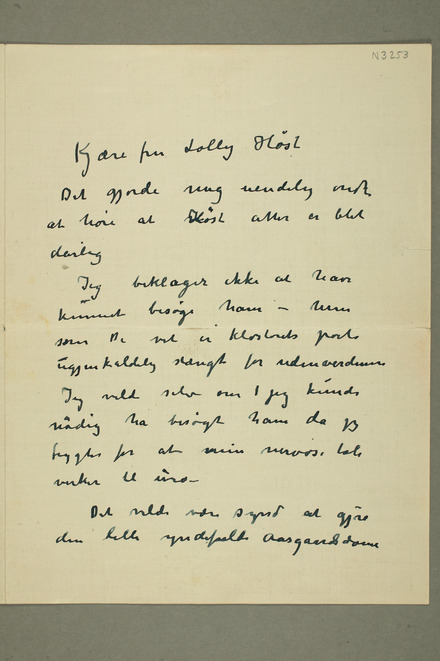 N 3253
Kjære fru Lolly Høst
Det gjorde mig uendelig ondt
at høre at Høst atter er blet
dårlig
Jeg beklager ikke at have
kunnet besøge ham – men
som De vet er klostrets porte
ugjenkaldelig stængt for udenverdenen
Jeg vild selv om jeg kunde
nødig ha besøgt ham da jeg
frygter for at min nervøse tale
virker til uro –
Det vilde være synd at gjøre
den lille yndefulde Aasgaardsdame